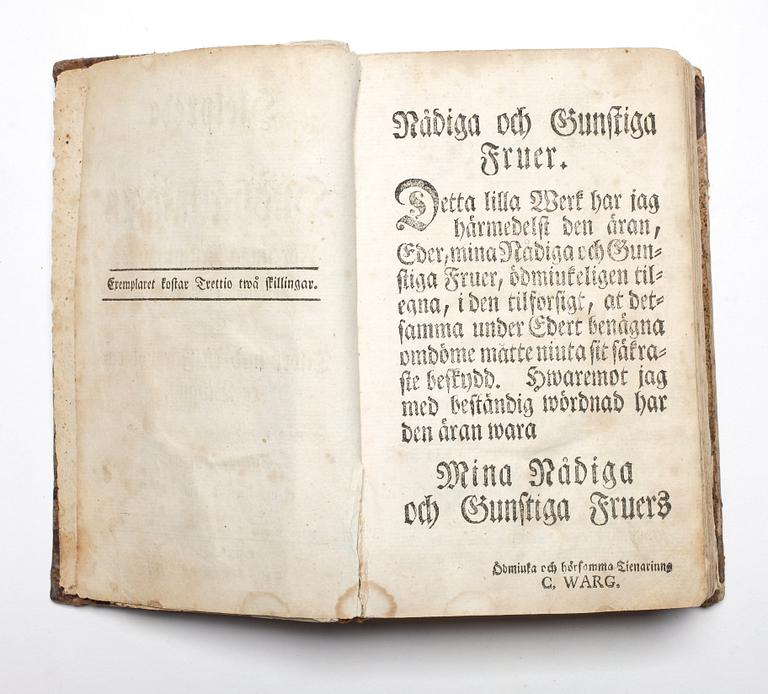 Exemplaret kostar Trettio twå skillingar.
Nådiga och Gunstiga
Fruer.
Detta lilla Werk har jag
härmedelst den äran,
Eder, mina Nådiga och Gun=
stiga Fruer, ödmiukeligen til=
egna, i den tilforsigt, at det=
samma under Edert benägna
omdöme måtte niuta sit säkra=
ste beskydd. Hwaremot jag
med beständig wördnad har
den äran wara
Mina Nådiga
och Gunstiga Fruers
Ödmiuka och hörsamma Tienarinna
C. WARG.